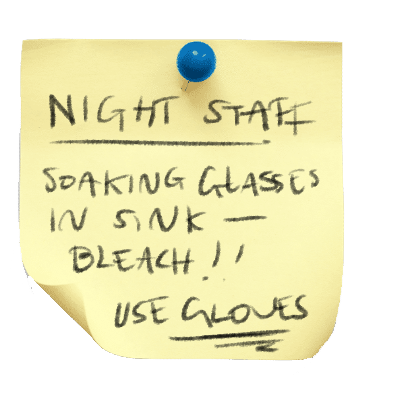 NIGHT STAFF
SOAKING GLASSES
IN SINK —
BLEACH!!
USE GLOVES